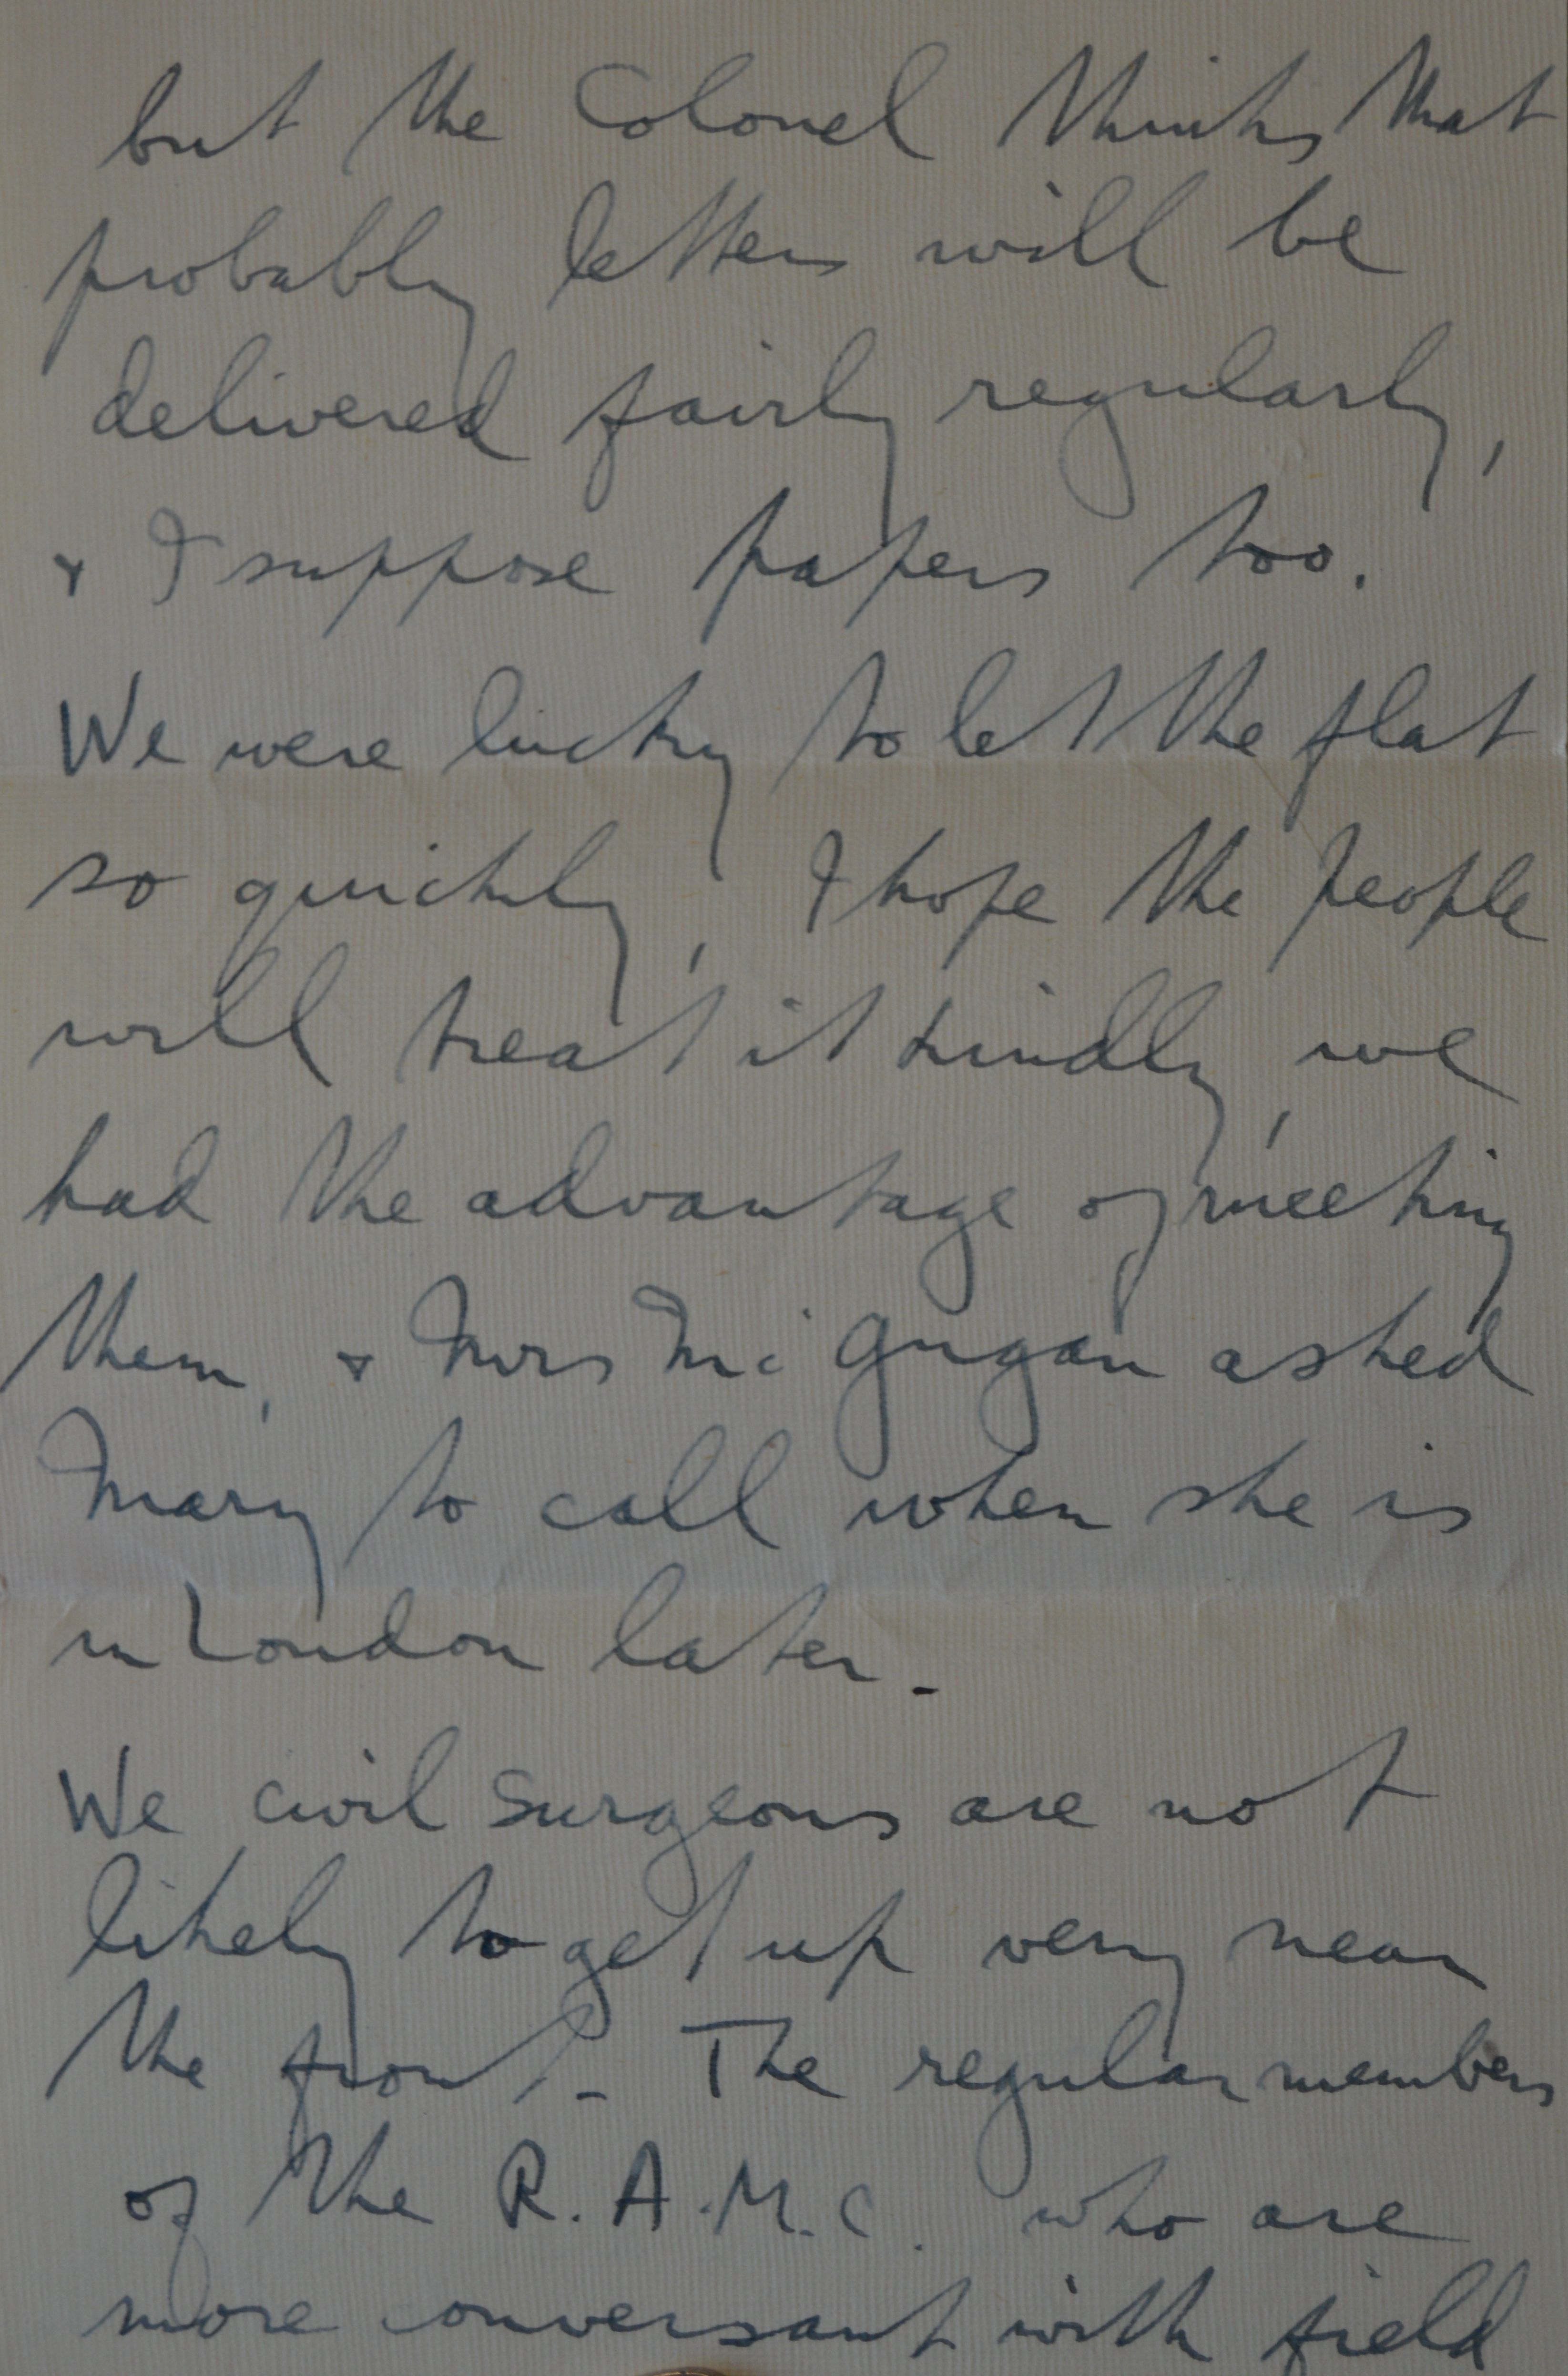 but the Colonel thinks that
probably letters will be
delivered fairly regularly,
& I suppose papers too.
We were lucky to let the flat
so quickly, I hope the people
will treat it kindly, we
had the advantage of meeting
them, & Mrs Mc Gugan asked
Mary to call when she is
in London later.
We civil surgeons are not
likely to get up very near
the front. The regular members
of the R.A.M.C. who are
more conversant with field